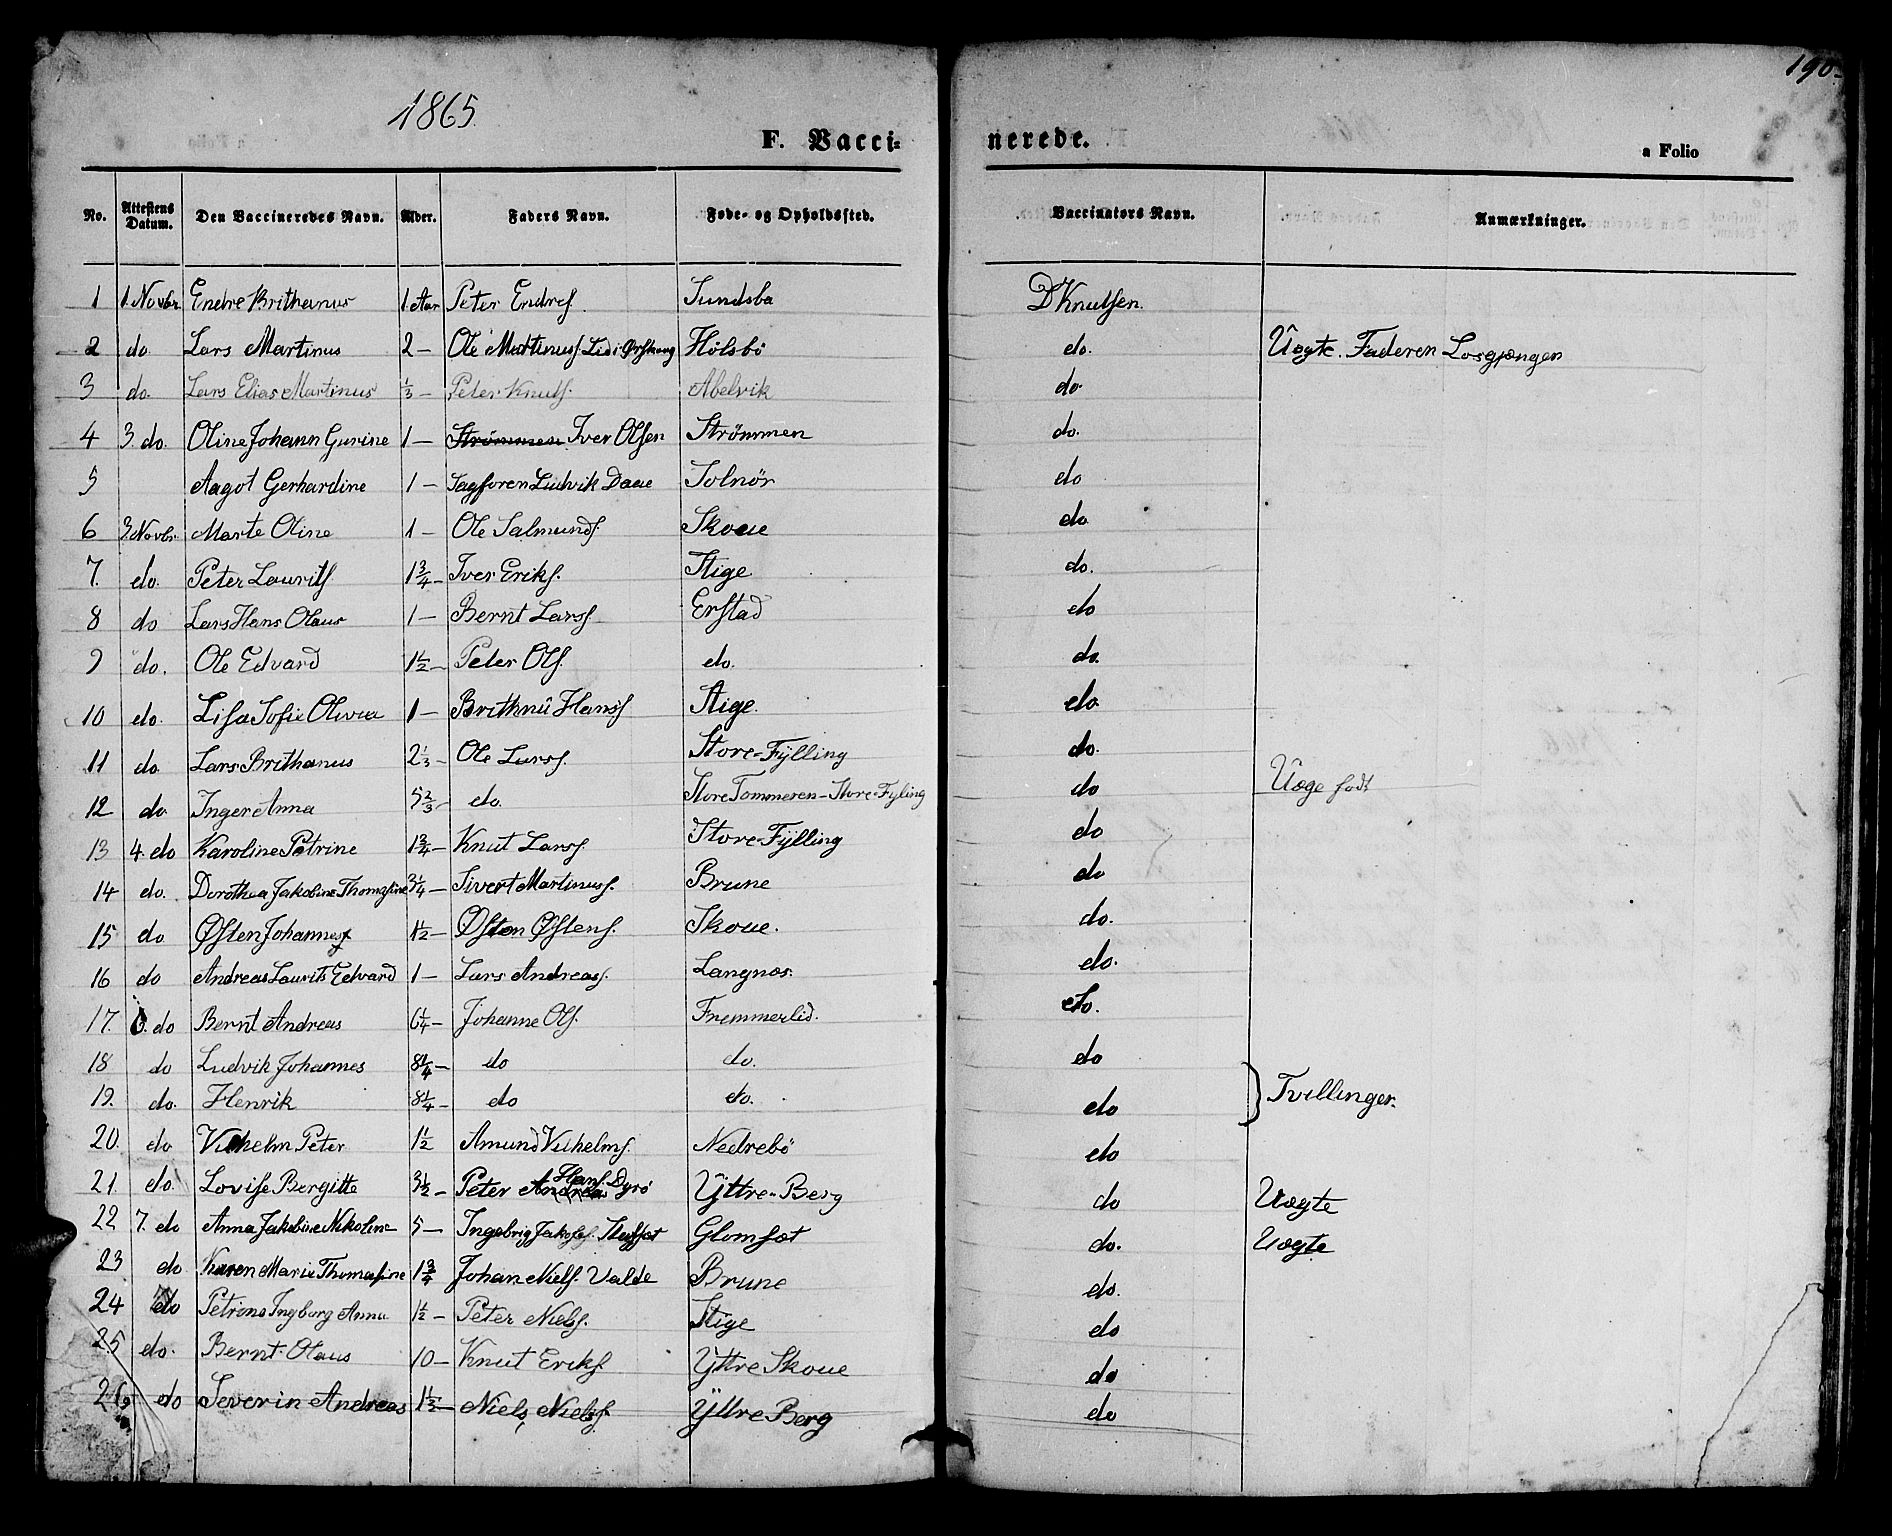 190.
1865.
F. Vacci=
nerede.
a Folio
No. Attestens Datum. Den Vaccineredes Navn. Alder. Faders Navn. Føde- og Opholdssted. Vaccinators Navn. Anmærkninger.
1 1. Novbr. Endre Brithanus 1. Aar Peter Endres. Sundsbø D Knutsen.
2 do Lars Martinus 2 - Ole Martinuss. Lid i Ørskoug Hølsbö do. Uægte. Faderen Losgjængen
3 do. Lars Elias Martinus 1/3 - Peter Knuts. Abelvik do
4 3. do. Oline Johann Gurine 1 - Strömmen Iver Olsen Strömmen do.
5 Aagot Gerhardine 1 - Sagforen Ludvik Daae Solnör do
6 3 Novbr. Marte Oline 1 - Ole Salmunds. Skoue do
7. do. Peter Laurits 1 3/4 - Iver Eriks. Stige do.
8 do Lars Hans Olaus 1 - Bernt Larss. Erstad do
9 do. Ole Edvard 1 1/2 - Peter Ols. do. do.
10 do. Lisa Sofie Olivia 1 - Brithnü Hanss. Stige. do
11 do Lars Brithanus 2 1/3 - Ole Larss. Store=Fÿlling do.
12 do Inger Anna 5 2/3 - do. Store Tommeren - Store=Fyling do Uæge født
13 4. do Karoline Petrine 1 3/4 - Knut Larss. Store=Fÿlling do
14 do. Dorothea Jakobine Thomasine 3 1/4 - Sivert Martinuss. Brune do
15 do Østen Johannes 1 1/2 - Østen Østens. Skoue. do.
16 do Andreas Laurits Edvard 1 - Lars Andreass. Langnæs. do.
17. 6. do Bernt Andreas 6 1/4 - Johanne Ols. Fremmerlid. do.
18 do Ludvik Johannes 8 1/4 - do do. do
19. do. Henrik 8 1/4 - do do. do } Tvillinger.
20. do Vilhelm Peter 1 1/2 Amund Vilhelms. Nedrebö do
21. do. Lovise Bergitte 3 1/2 - Peter Andreas Hans. Dyrö Ÿttre=Berg do Uægte
22 7. do Anna Jakobine Nikoline 5 - Ingebrig Jakobs. Glomsæt do. Uægte
23 do Karen Marie Thomasine 1 3/4 Johan Niels. Valde Brune do.
24 do Petrone Ingborg Anna 1 1/2 - Peter Niels. Stige do
25 do. Bernt Olaus 10 - Knut Eriks. Ÿttre Skoue do
26 do Severin Andreas 1 1/2 - Niels Nielss. Ÿttre Berg do